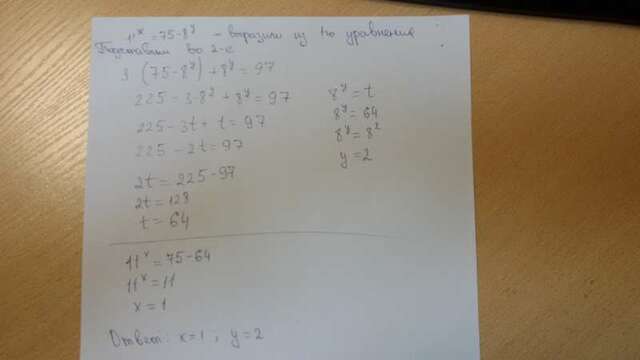 11ˣ = 75 - 8ʸ – выразили из 1го уравнения
Подставим во 2-е
3 (75 - 8ʸ) + 8ʸ = 97
225 - 3·8ʸ + 8ʸ = 97
225 - 3t + t = 97
225 - 2t = 97
2t = 225 - 97
2t = 128
t = 64
8ʸ = t
8ʸ = 64
8ʸ = 8²
y = 2
11ˣ = 75 - 64
11ˣ = 11
x = 1
Ответ: x = 1 ; y = 2